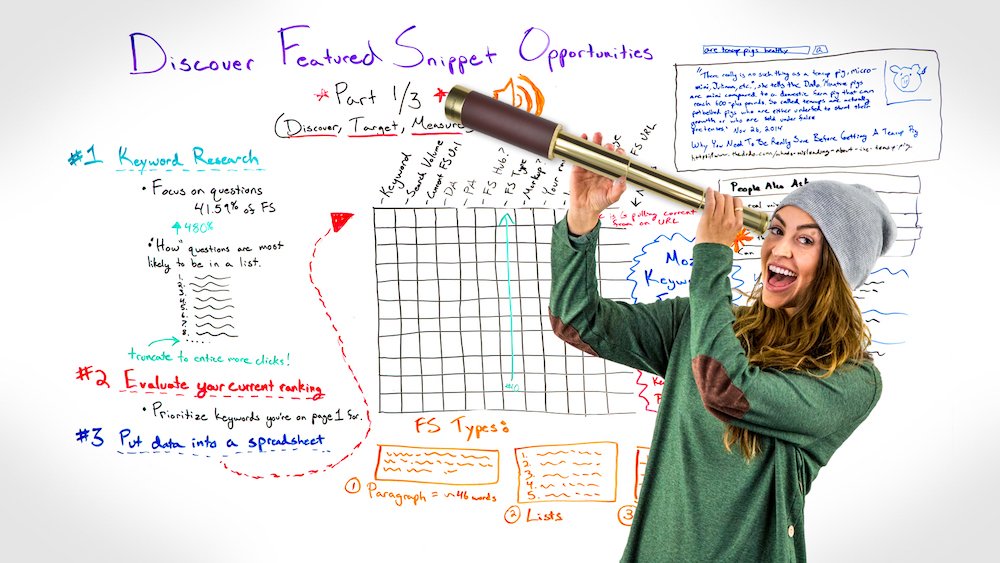 Discover Featured Snippet Opportunities
Part 1/3
(Discover, Target, Measure
#1 Keyword Research
• Focus on questions
41.59% of FS
↑ 480%
• "How" questions are most
likely to be in a list.
1.
2.
3.
4.
5.
6.
7.
8.
truncate to entice more clicks!
#2 Evaluate your current ranking
• Prioritize keywords you're on page 1 for.
#3 Put data into a spreadsheet
-Keyword
-Search Volume
-Current FS Url
-DA
-PA
-FS Hub?
-FS Type
-Markup?
-Your
FS URL
is G pulling current
from on URL
Moz
Keywor
FS Types:
① Paragraph = ~46 words
1.
2.
3.
4.
5.
② Lists
③
are teacup pigs healthy
"There really is no such thing as a teacup pig, micro-
mini, Juliana, etc.", she tells the Dodo. "Miniature pigs
are mini compared to a domestic farm pig that can
reach 600-plus pounds. So called teacups are actually
potbellied pigs who are either underfed to stunt their
growth or who are sold under false
pretenses." Nov 26, 2014
Why You Need To Be Really Sure Before Getting A Teacup Pig
People Also Ask